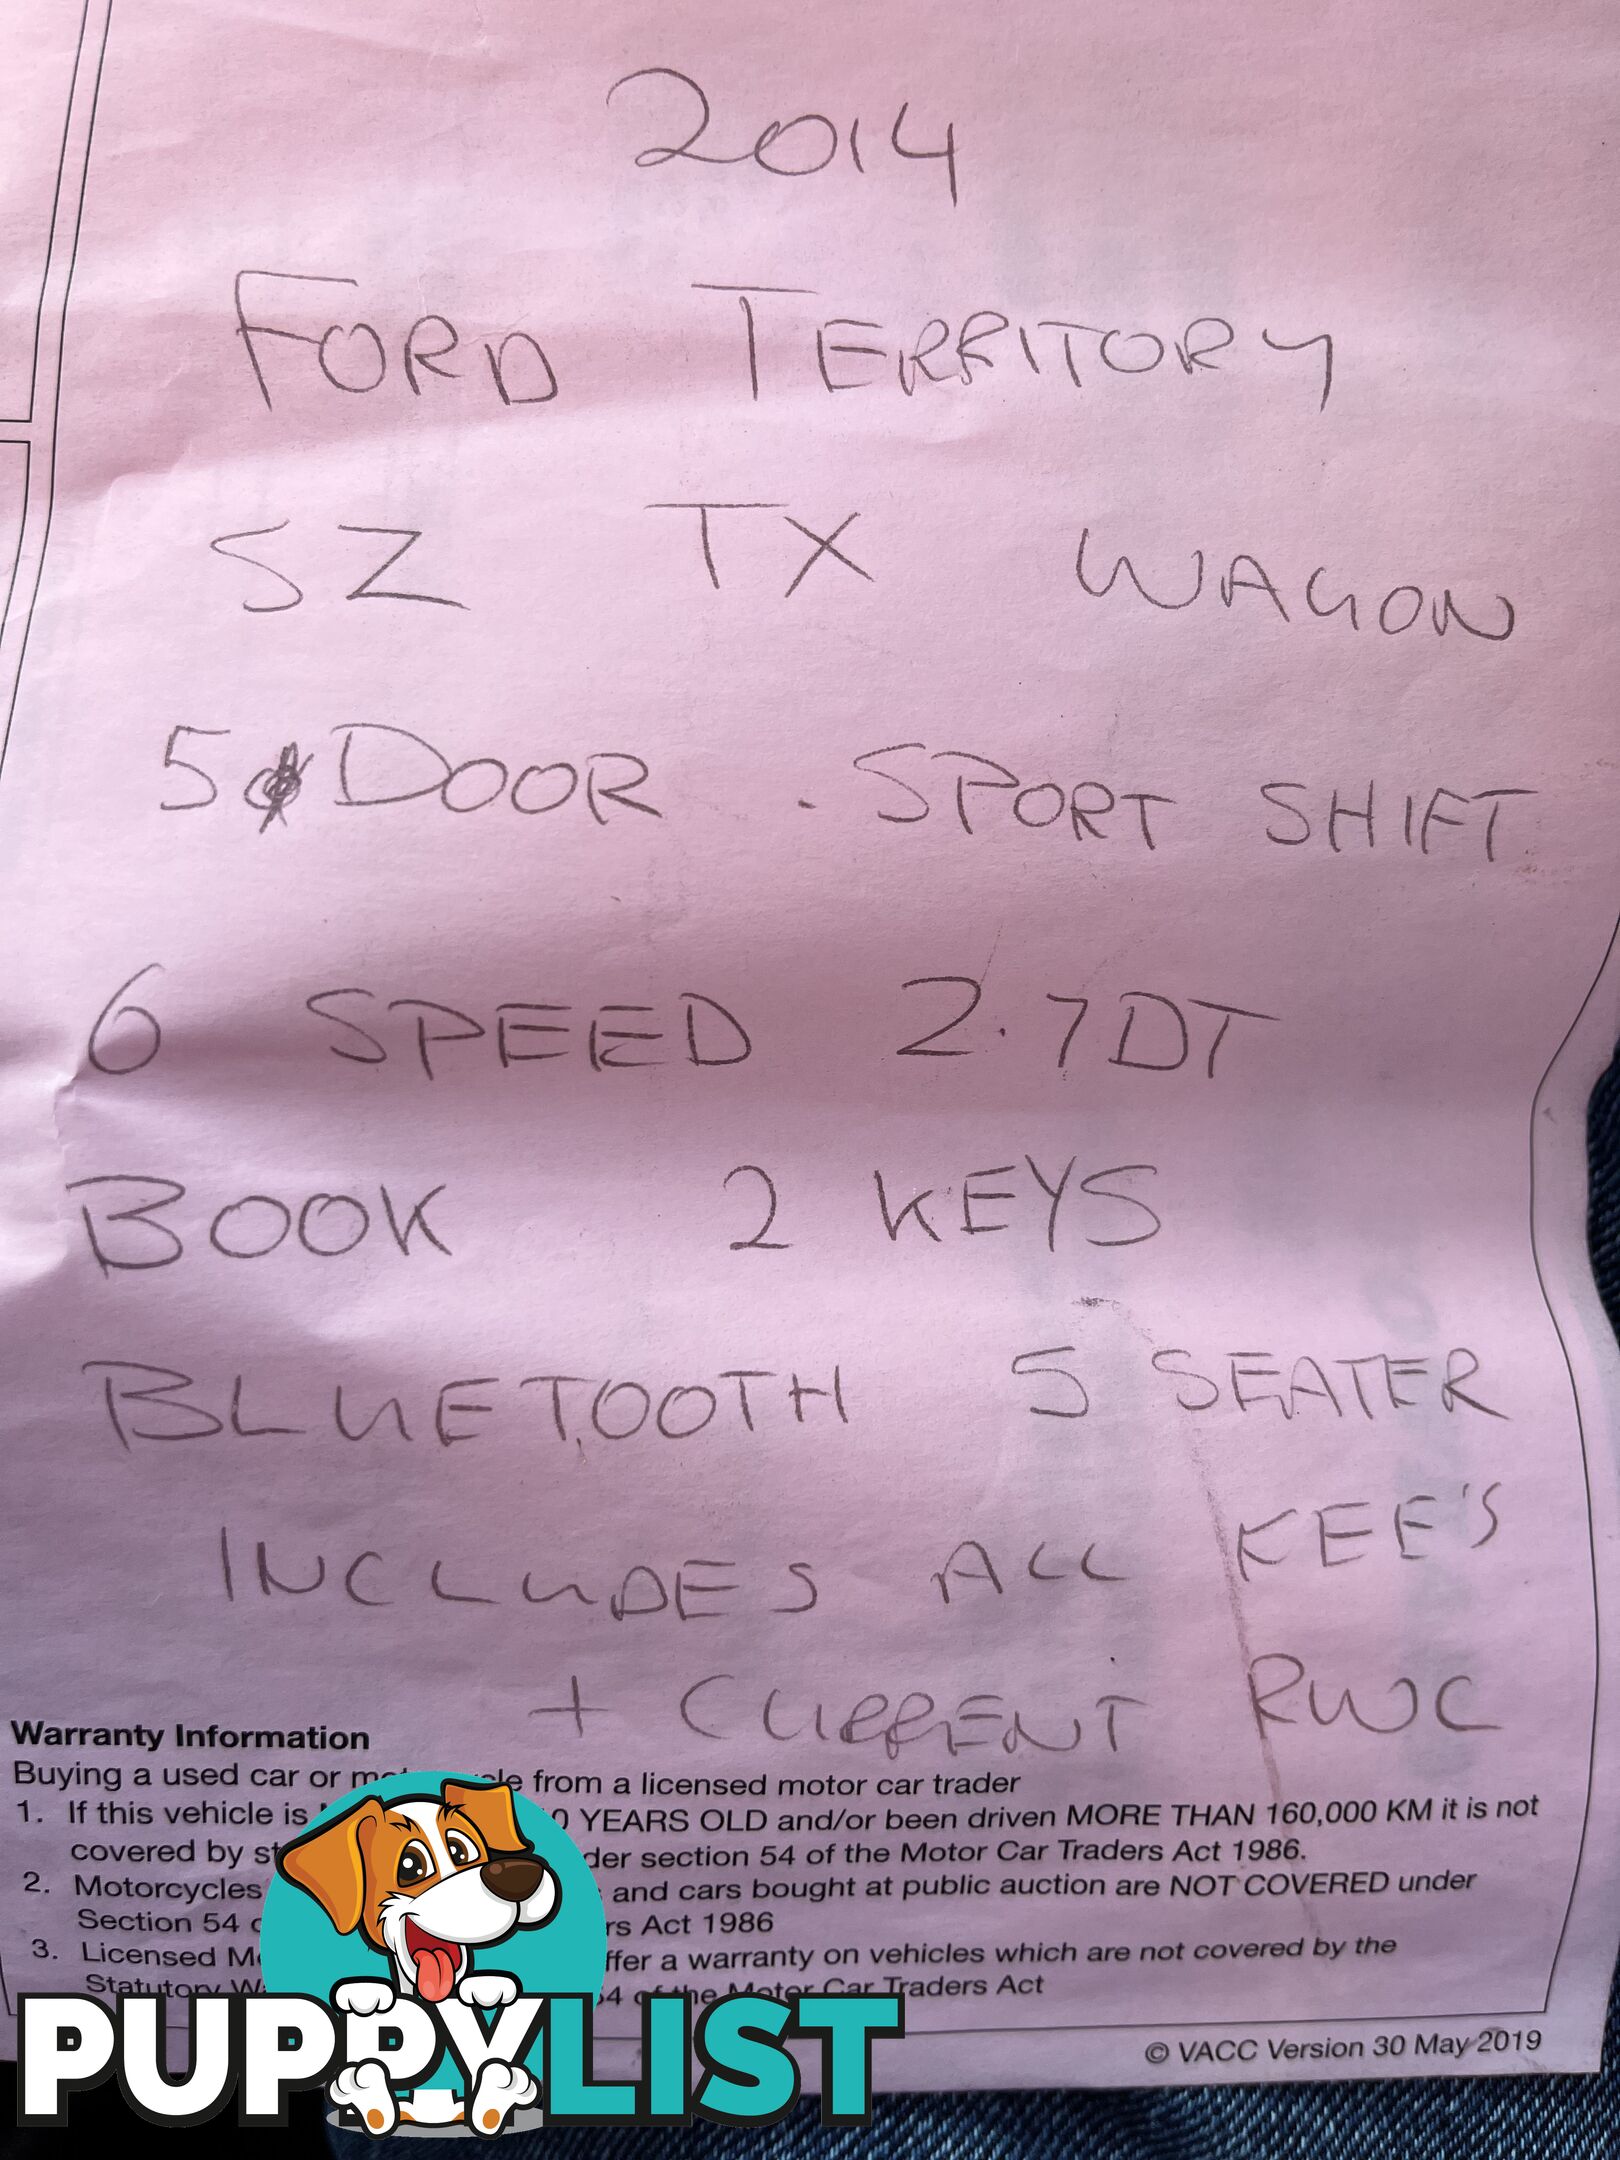 2014
FORD TERRITORY
SZ TX WAGON
5 DOOR . SPORT SHIFT
6 SPEED 2.7DT
BOOK 2 KEYS
BLUETOOTH 5 SEATER
INCLUDES ALL KEE'S
+ CURRENT RWC
Warranty Information
Buying a used car or from a licensed motor car trader
1. If this vehicle is YEARS OLD and/or been driven MORE THAN 160,000 KM it is not
covered by section 54 of the Motor Car Traders Act 1986.
2. Motorcycles and cars bought at public auction are NOT COVERED under
Section 54 Act 1986
3. Licensed a warranty on vehicles which are not covered by the
Statutory of the Motor Car Traders Act
© VACC Version 30 May 2019
PUPPYLIST